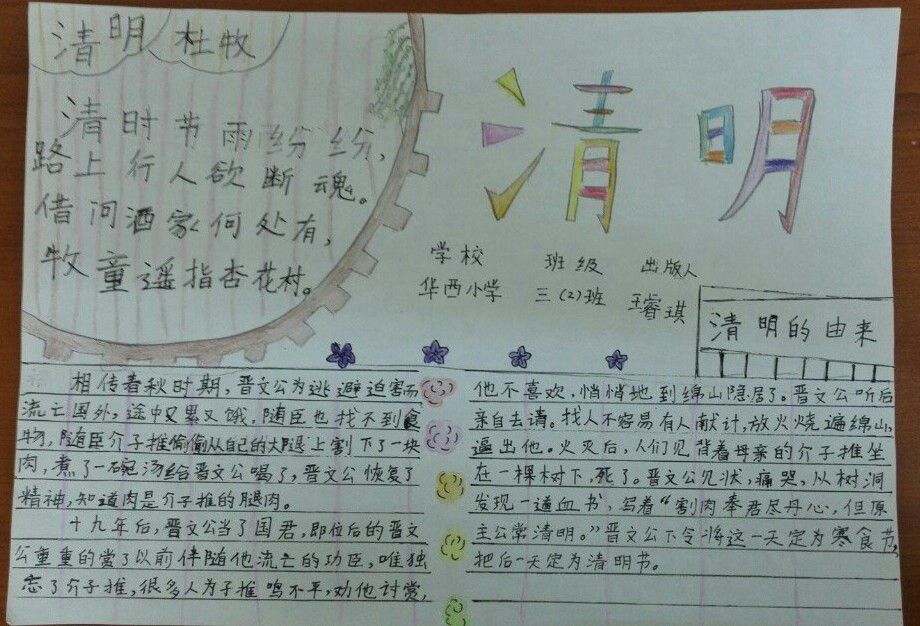 清明 杜牧
清时节雨纷纷,
路上行人欲断魂。
借问酒家何处有,
牧童遥指杏花村。
清明
学校 班级 出版人
华西小学 三(2)班 王睿琪
清明的由来
相传春秋时期,晋文公为逃避迫害而
流亡国外,途中又累又饿,随臣也找不到食
物,随臣介子推偷偷从自己的大腿上割下了一块
肉,煮了一碗汤给晋文公喝了,晋文公恢复了
精神,知道肉是介子推的腿肉。
十九年后,晋文公当了国君,即位后的晋文
公重重的赏了以前伴随他流亡的功臣,唯独
忘了介子推,很多人为子推鸣不平,劝他讨赏,
他不喜欢,悄悄地到绵山隐居了。晋文公听后
亲自去请。找人不容易有人献计,放火烧遍绵山,
逼出他。火灭后,人们见背着母亲的介子推坐
在一棵树下,死了。晋文公见状,痛哭,从树洞
发现一通血书,写着“割肉奉君尽丹心,但原
主公常清明。”晋文公下令将这一天定为寒食节,
把后一天定为清明节。